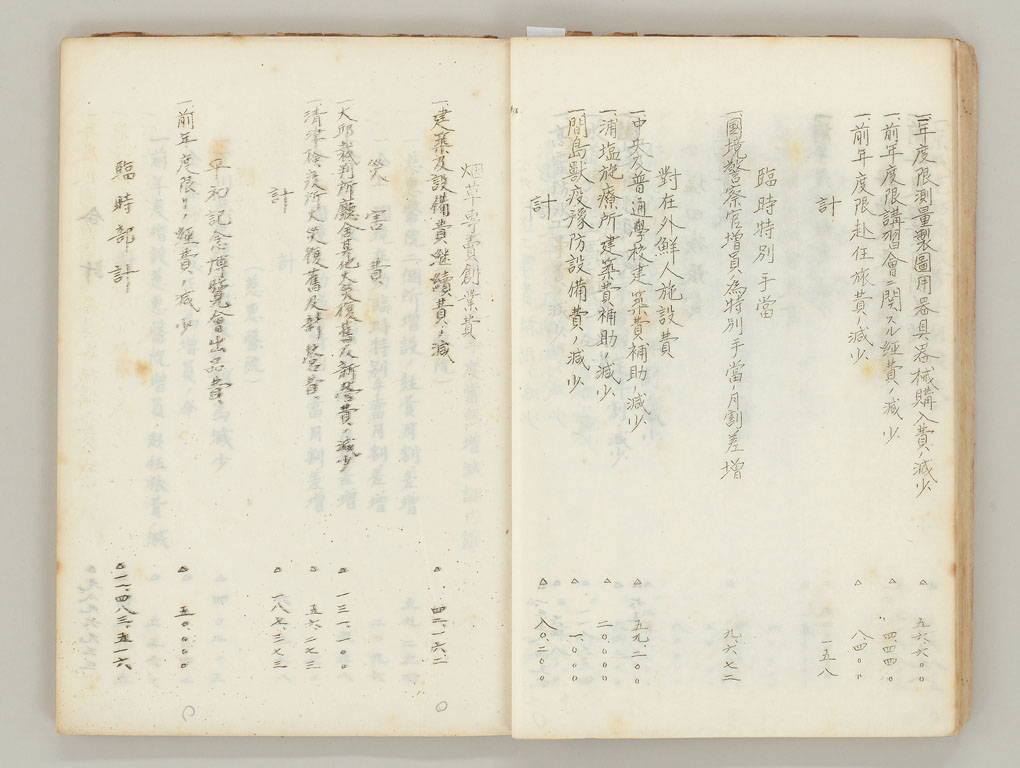 一、年度限測量製圖用器具器械購入費ノ減少 △ 五六、六〇〇
一、前年度限講習會ニ関スル経費ノ減少 △ 四、四四〇
一、前年度限赴任旅費ノ減少 △ 八、四〇〇
計 一五八
臨時特別手當
一、國境警察官増員ノ為特別手當ノ月割差増 九、六七二
對在外鮮人施設費
一、中央及普通學校建築費補助ノ減少 △ 五九、二〇〇
一、浦塩施療所建築費補助ノ減少 △ 二〇、〇〇〇
一、間島獣疫豫防設備費ノ減少 △ 一、〇〇〇
計 △ 八〇、二〇〇
烟草専賣創業費
一、建築及設備費継續費ノ減 △ 四二、一六二
営繕費
一、大邱裁判所廳舎其他火災復舊及新營費ノ減少 △ 一三一、一〇〇
一、清津検疫所火災復舊及新營費、 △ 五六、二七三
計 △ 一八七、三七三
平和記念博覧會出品費、
一、前年度限リノ経費ノ減少 △ 五〇、〇〇〇
臨時部計 △ 一一、四八三、五一六